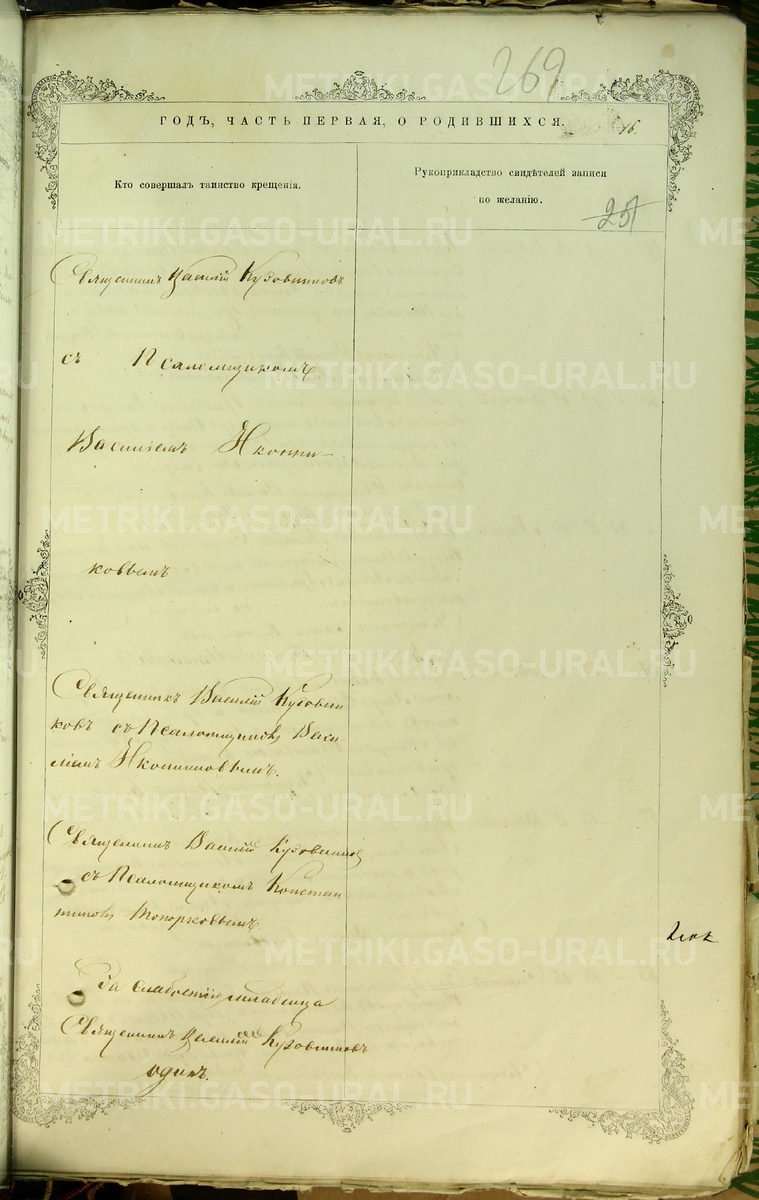 269
ГОДЪ, ЧАСТЬ ПЕРВАЯ, О РОДИВШИХСЯ.
Кто совершалъ таинство крещенія.
Рукоприкладство свидѣтелей записи
по желанію.
251
Священникъ Василій Кузовниковъ
съ Псаломщикомъ
Василіемъ Икони-
ковымъ
Священникъ Василій Кузовни
ковъ съ Псаломщикомъ Васи
ліемъ Иконниковымъ.
Священникъ Василій Кузовников
съ Псаломщикомъ Констан
тиномъ Топорковымъ.
За слабостію младенца
Священникъ Василій Кузовниковъ
одинъ.
METRIKI.GASO-URAL.RU